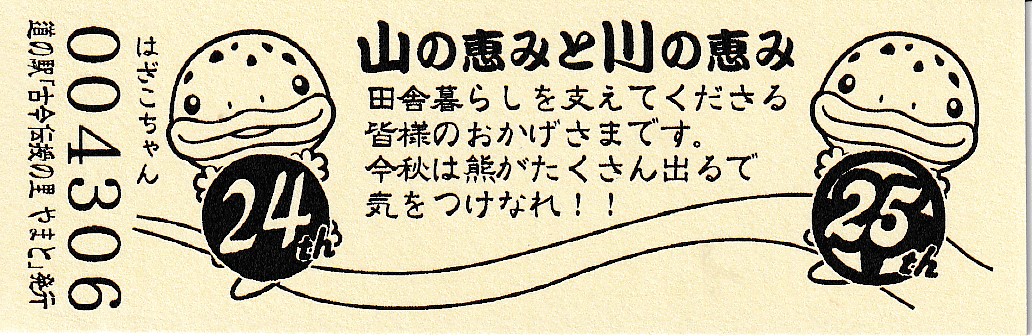 山の恵みと川の恵み
田舎暮らしを支えてくださる
皆様のおかげさまです。
今秋は熊がたくさん出るで
気をつけなれ！！
24th
25th
はざこちゃん
004306
道の駅「古今伝授の里やまと」発行